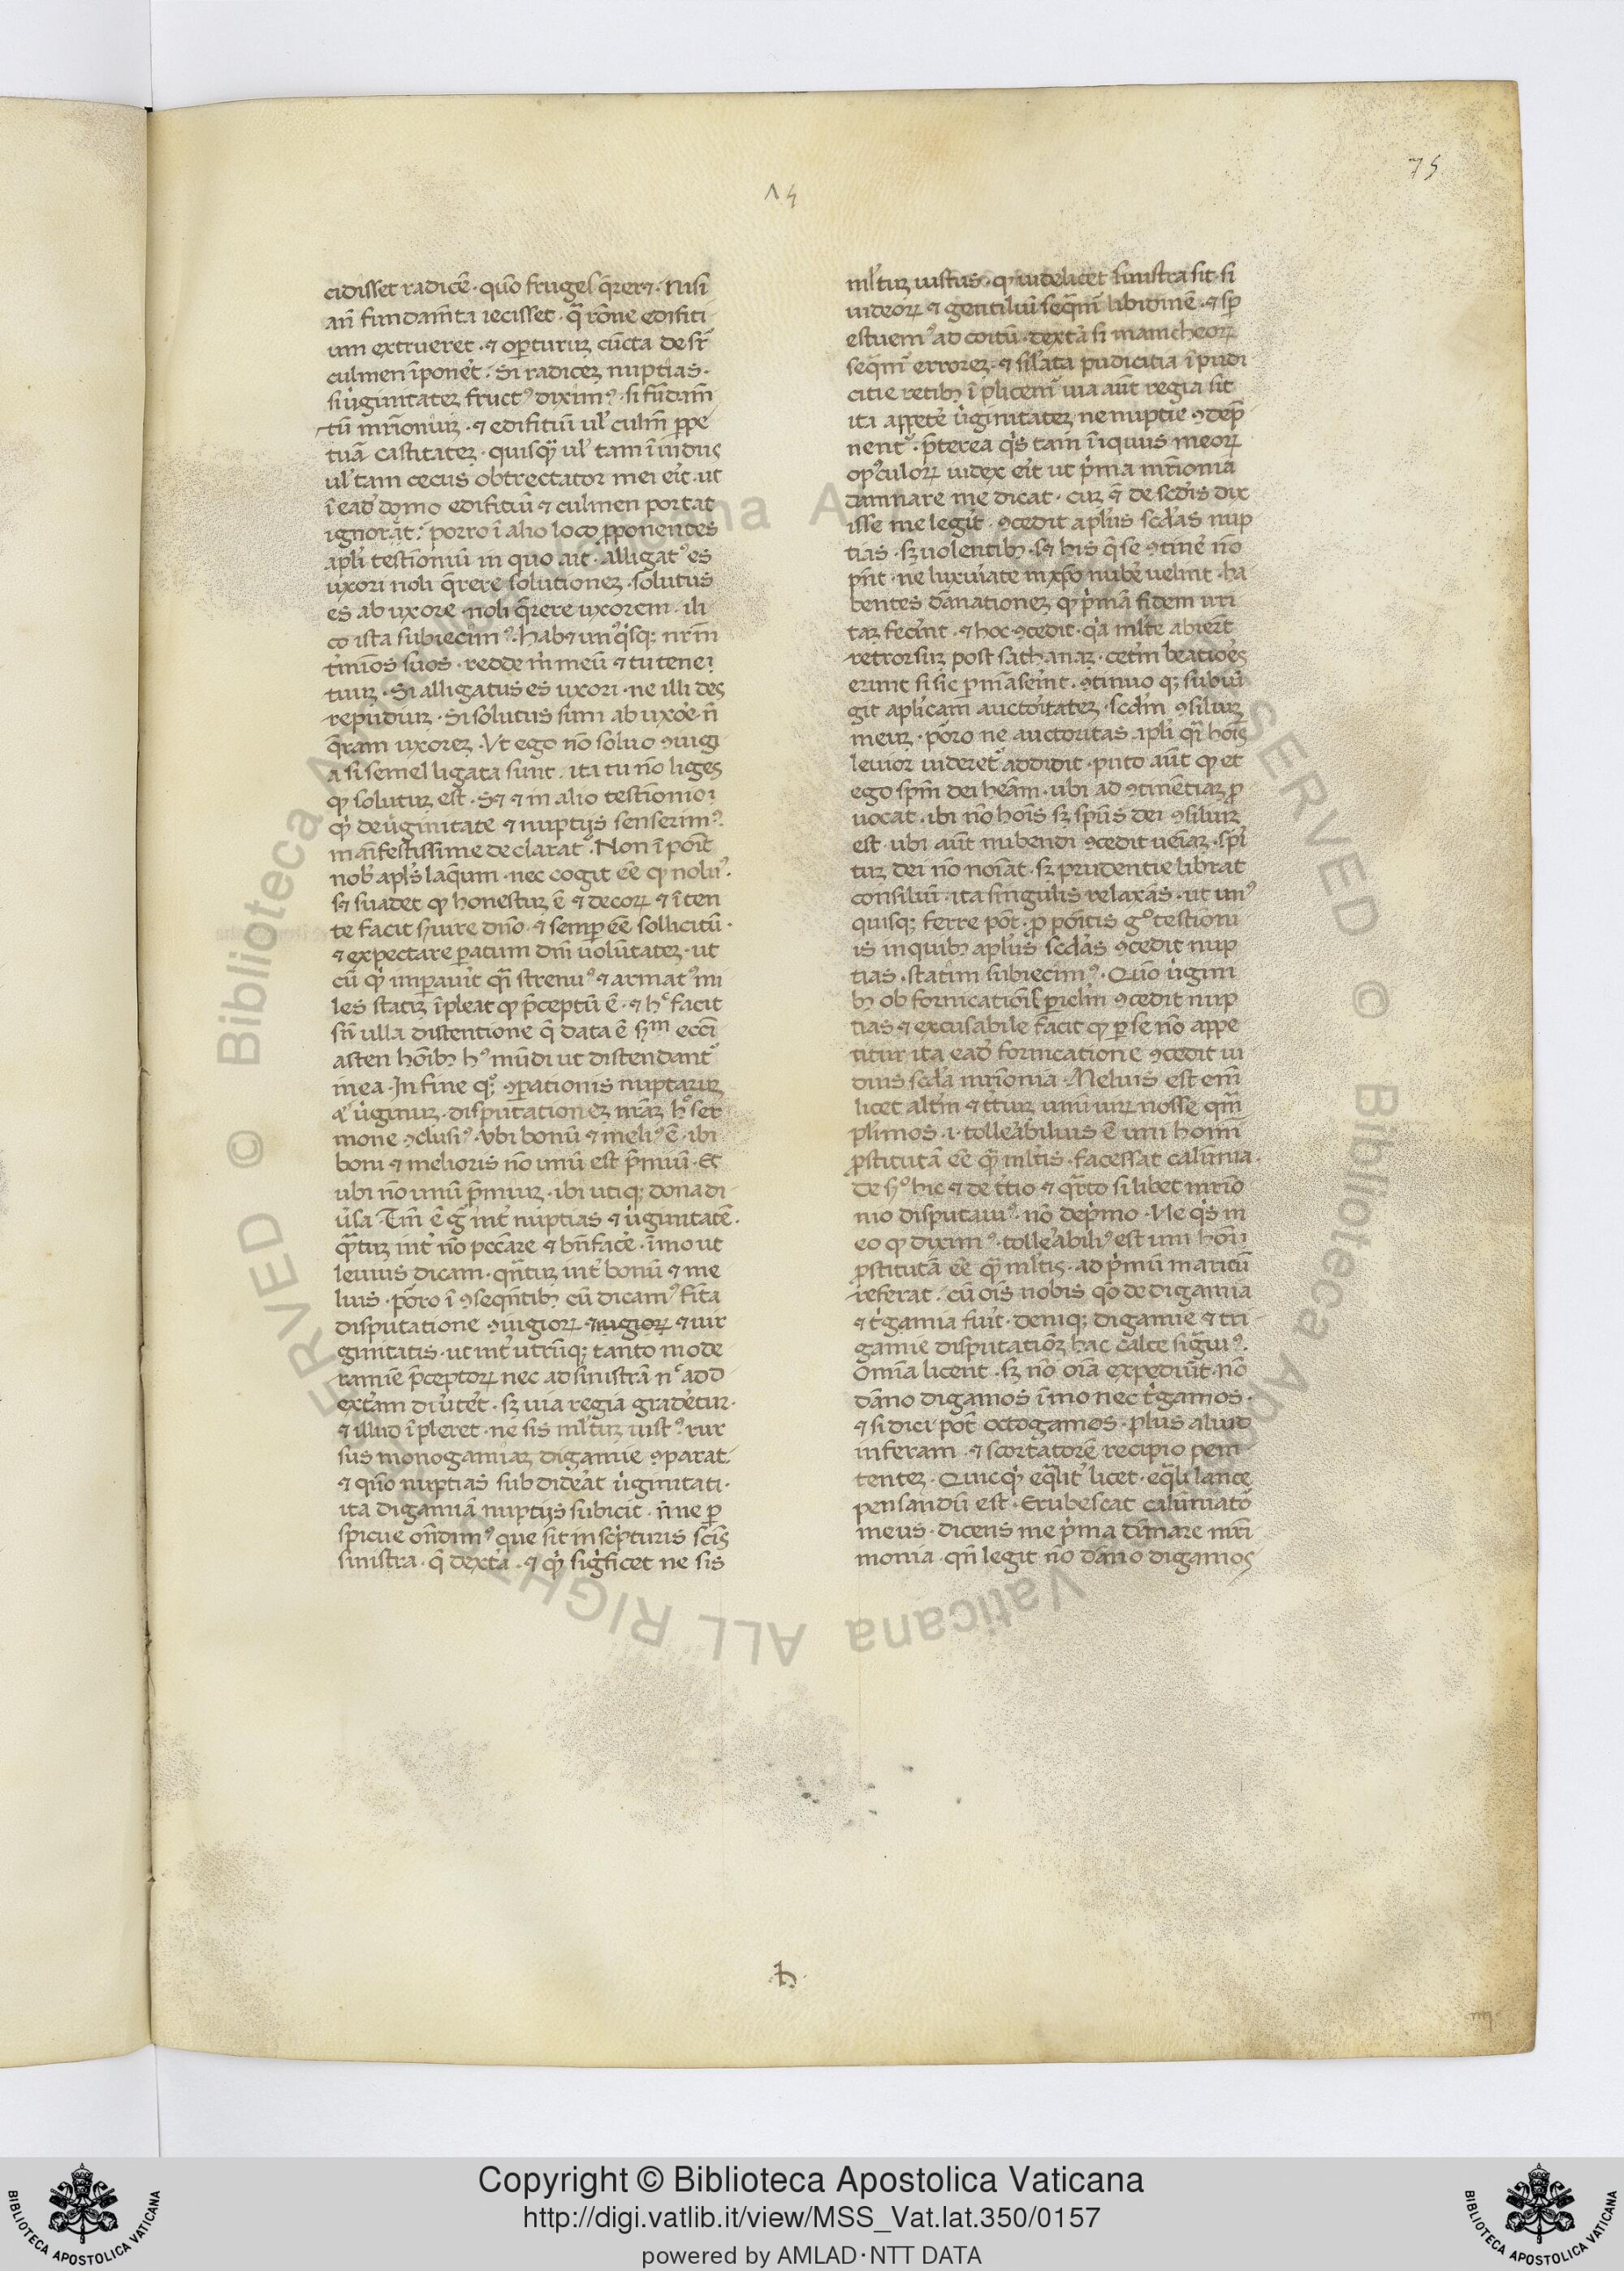 75
14
cidisset radicē · quō frugeſ q̄rerꝫ · Nisi
añ fundam̄ta iecisset · q̄ rōne edifiti
um extrueret · ⁊ oꝑturuꝫ cūcta desr̄
culmen īponet̉ · Si radiceꝫ nuptias ·
si ùginitateꝫ fruct᾽ dixim᾽ · si fūdam̄
tū mr̄ioniuꝫ · ⁊ edifitiū ul̉ culm̄ ꝑpe
tuā castitateꝫ · quisq̄ ul̉ tam īuidus
ul̉ tam cecus obtrectator mei er̉it · ut
ī ead̉ domo edifitiū ⁊ culmen portat
ignorat · porro ī alio loco ꝓponentes
apl̉i testimoniū in quo ait · alligat᾽ es
uxori noli q̄rere solutioneꝫ · solutus
es ab uxore · noli q̄rere uxorem · ili
co ista subiecim᾽ · habꝫ un᾽q̇sqꝫ nr̄m
t̉mīos suos · redde m̉ meū ⁊ tu tene
tuuꝫ · Si alligatus es uxori · ne illi des
repudiuꝫ · Si solutus sum ab uxoe̓ · n̄
q̄ram uxoreꝫ · Vt ego nō soluo ꝯiugi
a si semel ligata sunt · ita tu nō liges
qꝫ solutuꝫ est · Sꝫ ⁊ in alio testimonio
qd̓ de ùginitate ⁊ nuptijs senserim᾽
manifestissime declarat᾽ · Non ī ponit
nob̓ apl̓s laq̄um · nec cogit eē qꝫ nolu᾽ ·
sꝫ suadet qꝫ honestuꝫ ē ⁊ decoꝝ ⁊ īten
te facit ẜuire dn̄o · ⁊ semꝑ eē sollicitū ·
⁊ expectare ꝑatum dn̄i uoluntateꝫ · ut
cū qd̓ imꝑauit q̄ strenu᾽ ⁊ armat᾽ mi
les statiꝫ īpleat qꝫ p̄ceptū ē · ⁊ hᶜ facit
sn̄ ulla distentione q̄ data ē ẜm ecc̄i
asten hōibꝫ h᾽ mūdi ut distendant᾽
in ea · In fine qꝫ ꝯꝑationis nuptaruꝫ
⁊ ùginuꝫ · disputationeꝫ nr̄aꝫ hᵒ ser
mone ꝯclusi᾽ · Vbi bonū ⁊ meli᾽ ē · ibi
boni ⁊ melioris nō unū est p̄miū · Et
ubi nō unū p̄miuꝫ · ibi utiqꝫ dona di
ùsa · Tm̄ ē g̊ int̉ nuptias ⁊ ùginitatē ·
q̄tuꝫ int̉ nō pcc̄are ⁊ bn̄facē · īmo ut
leuius dicam · qn̄tuꝫ int̉ bonū ⁊ me
lius · porro ī ꝯseqn̄tibꝫ cū dicam᾽ finita
disputatione ꝯiugioꝝ ⁊ iugioꝝ ⁊ uir
ginitatis · ut int̉ utrūqꝫ tanto mode
ramīe p̄ceptoꝝ nec ad sinistrā nᶜ ad d
ext̉am diùtet̉ · sꝫ uia regia gradet̉ur ·
⁊ illud īpleret · ne sis ml̉tuꝫ iust᾽ · rur
sus monogamiaꝫ digamie ꝯparat
⁊ quō nuptias subdid̉at ùginitati ·
ita digamiā nuptijs subicit · n̄ne ꝑ
spicue on̄dim᾽ que sit in sc̉pturis scīs
sinistra · q̄ dext̉a · ⁊ qd̓ sig̉ficet ne sis
ml̉tuꝫ iustus · qꝫ uidelicet sinistra sit · si
iudeoꝝ ⁊ gentiliū seq̄m̉ libidinē · ⁊ sꝑ
estuem᾽ ad coitū · dext̉a si manicheoꝝ
seq̄m̉ erroreꝫ · ⁊ sil̉ata pudicitia īpudi
citie retibꝫ īplicem̉ uia aūt regia sit
ita appete̓ ùginitateꝫ ne nuptie ꝯdep̄
nent᾽ · p̄terea q̇s tam īiquus meoꝝ
op᾽culoꝝ iudex er̉it ut p̉ma mr̄ionia
damnare me dicat · cuꝫ ⁊ de scd̓is dix
isse me legit · ꝯcedit apl̓us scd̓as nup
tias · sꝫ uolentibꝫ · sꝫ his q̄ se ꝯtinē nō
pn̄t · ne luxuiate in xp̄o nube̓ uelint · ha
bentes dānationeꝫ qꝫ p̉mā fidem irri
taꝫ fecint · ⁊ hoc ꝯcedit · q̇a ml̉te abiert̄
retrorsuꝫ post sathanaꝫ · cet̉m beatioe̓s
erunt si sic ꝑmāse̓int · ꝯtinuo qꝫ subiū
git apl̓icam auctoritateꝫ · scd̓m ꝯsiliuꝫ
meuꝫ · porro ne auctoritas apl̉i q̄i hoīs
leuior uideret᾽ addidit · puto aūt qꝫ et
ego spm̄ dei heām · ubi ad ꝯtinētiaꝫ ꝓ
uocat · ibi nō hoīs sꝫ spūs dei ꝯsiliuꝫ
est · ubi aūt nubendi ꝯcedit ueīaꝫ · spī
tuꝫ dei nō noīat · sꝫ prudentie librat
consiliū · ita singulis relaxās · ut un᾽
quisqꝫ ferre pōt · ꝓpoītis gᵒ testimōi
is in quibꝫ apl̓us scd̓as ꝯcedit nup
tias · statim subiecim᾽ · Quō ùgini
bꝫ ob fornicatiōis ꝑicl̓m ꝯcedit nup
tias ⁊ excusabile facit qꝫ ꝑ se nō appe
titur ita ead̉ fornicatione ꝯcedit ui
duis scd̓a mr̄ionia · Melius est em̄
licet alt̉m ⁊ t̉tiuꝫ unū uiꝝ nosse qm̄
pl̓imos · i · tolleabilius ē uni homī
ꝓstitutā eē q̄ ml̉tis · facessat calūnia ·
de ẜᵒ hic ⁊ de t̉tio ⁊ q̄rto si libet mr̄io
nio disputaui᾽ · nō depimo · Ne q̇s in
eo qꝫ dixim᾽ · tolle̓abili᾽ est uni hōi
ꝓstitutā eē q̄ ml̉tis · ad p̉mū maritū
referat · cū oīs nobis q̄o de digamia
⁊ t̉gamia fuit · deniqꝫ digamie ⁊ tri
gamie disputatiōeꝫ hac calce sig̉ui᾽ ·
Omīa licent · sꝫ nō oīa expediūt · nō
dāno digamos īmo nec t̉gamos ·
⁊ si dici pōt octogamos · plus aliud
inferam · ⁊ scortatorē recipio peni
tenteꝫ · Quicqd̓ eq̄lit̉ licet · eq̄li lance
pensandū est · Erubescat calūniatō
meus · dicens me p̉ma dānare mr̄i
monia · qn̄ legit nō dāno digamos
Copyright © Biblioteca Apostolica Vaticana
http://digi.vatlib.it/view/MSS_Vat.lat.350/0157
powered by AMLAD·NTT DATA